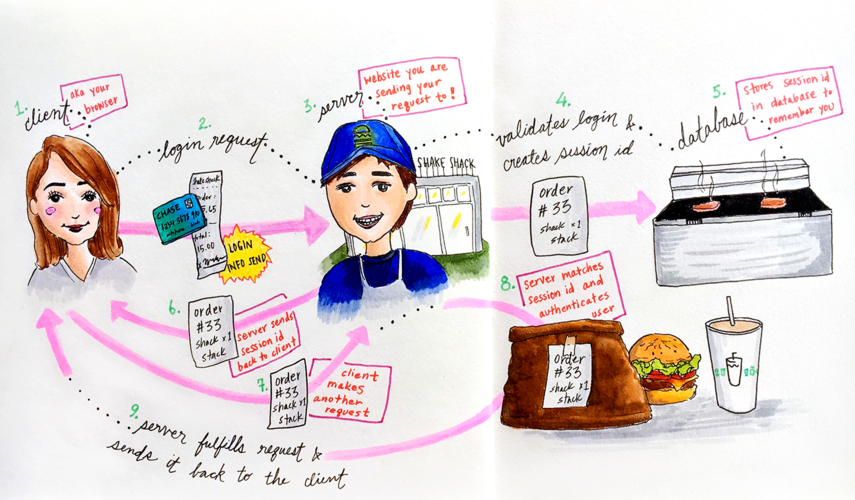 1.
client
aka your
browser
2.
login request
3.
server
website you are
sending your
request to!
4.
validates login &
creates session id
5.
database
stores session id
in database to
remember you
SHAKE SHACK
CHASE
1234 5678 90
Shake Shack
order:
total:
15.00
LOGIN
INFO SEND
order
#33
shack x1
stack
6.
order
#33
shack x1
stack
server sends
session id
back to client
7.
order
#33
shack x1
stack
client
makes
another
request
8.
server matches
session id and
authenticates
user
order
#33
shack x1
stack
9.
server fulfills request &
sends it back to the client